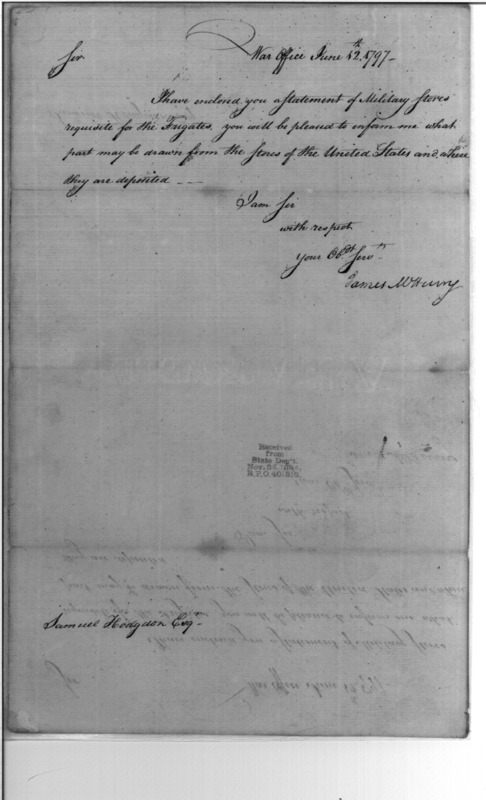 War Office June 12th 1797-
Sir
I have enclosed you a Statement of Military Stores
requisite for the Frigates, you will be pleased to inform me what
part may be drawn from the Stores of the United States and, where
they are deposited --
I am Sir
with respect
Your Obdt Servt
James McHenry
Received
from
State Dep't.
Samuel Hodgdon Esq-